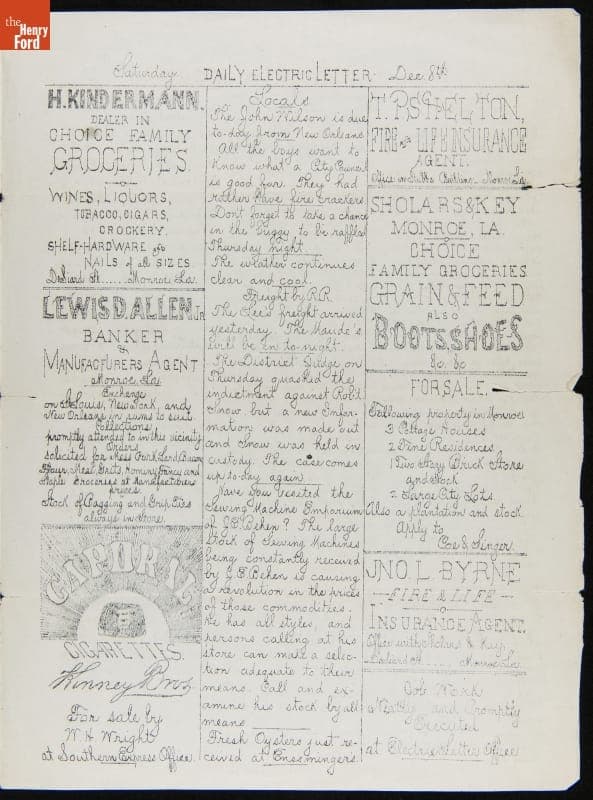 the
Henry
Ford
Saturday DAILY ELECTRIC LETTER Dec. 8th
H. KINDERMANN.
DEALER IN
CHOICE FAMILY
GROCERIES.
WINES, LIQUORS,
TOBACCO, CIGARS,
CROCKERY.
SHELF-HARDWARE and
NAILS of all SIZES.
DeSiard St..... Monroe La.
LEWIS D. ALLEN Jr
BANKER
&
MANUFACTURERS AGENT
Monroe, La.
Exchange
on St Louis, New York, and
New Orleans in sums to suit
Collections
promptly attended to in this vicinity
Orders
solicited for Mess Pork, Lard, Bacon,
Flour, Meal, Grits, Hominy, Fancy and
Staple Groceries at Manufacturers
prices.
Stock of Bagging and Grip Ties
always in store.
CAPORAL
CIGARETTES.
Kinney Bros
For sale by
W. H. Wright
at Southern Express Office.
Locals
The John Wilson is due
to-day from New Orleans
All the boys want to
know what a City Council
is good for. They had
rather have fire crackers
Dont forget to take a chance
in the Buggy to be raffled
Thursday night.
The weather continues
clear and cool.
Freight by R.R.
The freight arrived
yesterday. The Maude's
will be in to-night.
The District Judge on
Thursday quashed the
indictment against Robt
Snow but a new Infor-
mation was made out
and Snow was held in
custody. The case comes
up to-day again.
Have you visited the
Sewing Machine Emporium
of J. E. Behen? The large
stock of Sewing Machines
being constantly received
by J. E. Behen is causing
a revolution in the prices
of those commodities.
He has all styles, and
persons calling at his
store can make a selec-
tion adequate to their
means. Call and ex-
amine his stock by all
means.
Fresh Oysters just re-
ceived at Ensmingers.
T. P. SHELTON,
FIRE and LIFE INSURANCE
AGENT.
Office in Building. Monroe La.
SHOLARS & KEY
MONROE, LA.
CHOICE
FAMILY GROCERIES
GRAIN & FEED
ALSO
BOOTS SHOES
&c. &c
FOR SALE.
Following property in Monroe
3 Cottage Houses
2 Fine Residences
1 Two Story Brick Store
and Stock
2 Large City Lots.
Also a plantation and stock.
Apply to
Coe & Singer.
JNO. L. BYRNE
FIRE & LIFE
INSURANCE AGENT.
Office with Sholars & Key
DeSiard St..... Monroe La.
Job Work
Neatly and Promptly
Executed
at Electric Letter Office